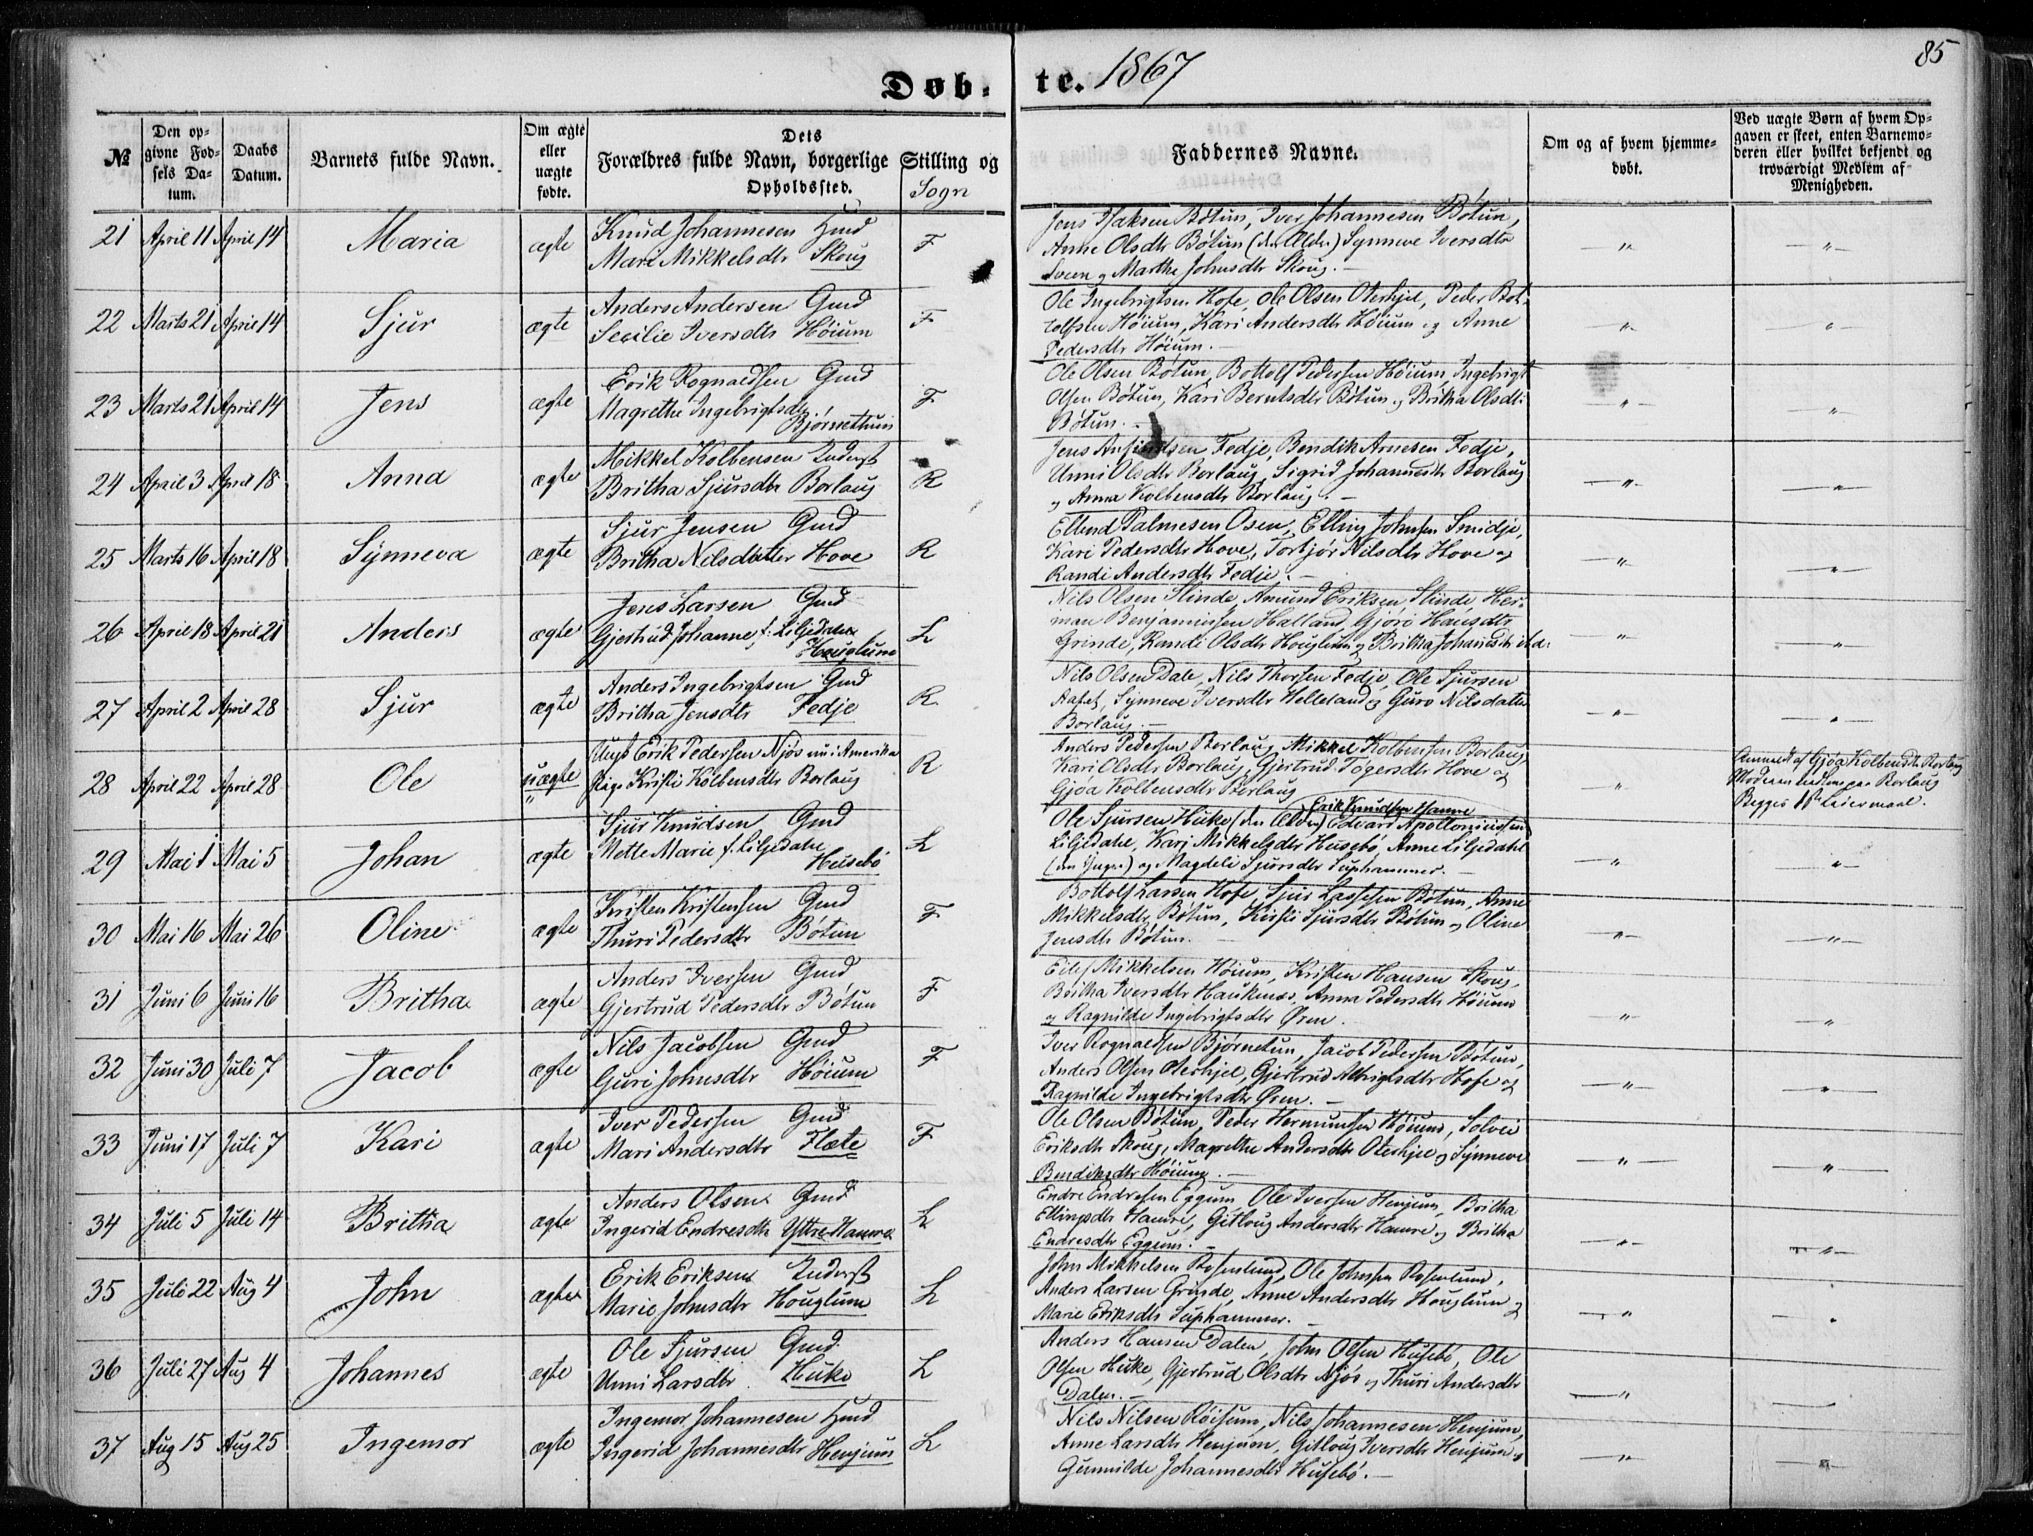 85
Døb-te. 1867
№
Den opgivne Fødsels Datum.
Daabs Datum.
Barnets fulde Navn.
Om ægte eller uægte fødte.
Dets Forældres fulde Navn, borgerlige Stilling og Opholdssted.
Sogn
Faddernes Navne.
Om og af hvem hjemmedøbt.
Ved uægte Børn af hvem Opgaven er skeet, enten Barnemoderen eller hvilket bekjendt og troværdigt Medlem af Menigheden.
21 April 11 April 14 Maria ægte Knud Johannesen Hmd F Jens Isaksen Bøtun, Iver Johannesen Bøtun,
Mari Mikkelsdtr Skoug Anne Olsdtr Bøtun (den Ældr.) Synneve Iversdtr
Sveen og Marthe Johnsdtr Skoug. —
22 Marts 21 April 14 Sjur ægte Anders Andersen Gmd F Ole Ingebrigtsen Hofe, Ole Olsen Oterhjel, Peder Bot-
Secilie Iversdtr Høium tolfsen Høium, Kari Andersdtr Høium og Anne
Pedersdtr Høium. —
23 Marts 21 April 14 Jens ægte Erik Rognaldsen Gmd F Ole Olsen Bøtun, Bottolf Pedersen Høium, Ingebrigt
Magrethe Ingebrigtsdtr. Bjørnethun Olsen Bøtun, Kari Berntsdtr Bøtun og Britha Olsdtr
Bøtun. —
24 April 3 April 18 Anna ægte Mikkel Kolbensen Inderst R Jens Fedje, Bendik Arnesen Fedje,
Britha Sjursdtr Borlaug Unni Olsdtr Borlaug, Sigrid Johannesdtr Borlaug
og Anna Kolbensdtr Borlaug. —
25 Marts 16 April 18 Synneva ægte Sjur Jensen Gmd R Ellend Palmesen Osen, Elling Johnsen Smidje,
Britha Nilsdatter Hove Kari Pedersdtr Hove, Torbjør Nilsdtr Hove og
Randi Andersdtr Fedje. —
26 April 18 April 21 Anders ægte Jens Larsen Gmd L Nils Olsen Slinde, Amund Eriksen Slinde, Her-
Gjertrud Johanne f. Liljedahl Houglum man Benjaminsen Halland, Gjøre Hansdtr
Grinde, Randi Olsdtr Houglum og Britha Johannesdtr ibd.
27 April 2 April 28 Sjur ægte Anders Ingebrigtsen Gmd R Nils Olsen Dale, Nils Thorsen Fedje, Ole Sjursen
Britha Jensdtr Fedje Synneve Iversdtr Helleland og Guro Nilsdatter
Borlaug. —
28 April 22 April 28 Ole uægte Ungk Erik Pedersen Njøs nu i Amerika R Anders Pedersen Borlaug, Mikkel Kolbensen Borlaug,
Pige Kristi Kolbensdtr Borlaug Kari Olsdtr Borlaug, Gjertrud Togersdtr Hove og
Gjøa Kolbensdtr Borlaug
Anmeldt af Gjøa Kolbensdtr Borlaug
Moderen Borlaug
Begges 1ste Leiermaal.
29 Mai 1 Mai 5 Johan ægte Sjur Knudsen Gmd L Ole Sjursen Huke (den Ældre) Erik Knudsen Hamre Edvard Apolloniussen
Mette Marie f. Liljedahl Husebø Liljedahl, Kari Mikkelsdtr Husebø, Anne Liljedahl
(den Yngr.) og Magdeli Sjursdtr Suphammer. —
30 Mai 16 Mai 26 Oline ægte Kristen Kristensen Gmd F Bottolf Larsen Hofe, Sjur Lassesen Bøtun, Anne
Thuri Pedersdtr Bøtun Mikkelsdtr Bøtun, Kirsti Sjursdtr Bøtun og Oline
Jensdtr Bøtun. —
31 Juni 6 Juni 16 Britha ægte Anders Iversen Gmd F Eilef Mikkelsen Høium, Kristen Hansen Skoug,
Gjertrud Pedersdtr Bøtun Britha Iversdtr Haukenæs, Anna Pedersdtr Høium
og Ragnilde Ingebrigtsdtr Øren.
32 Juni 30 Juli 7 Jacob ægte Nils Jacobsen Gmd F Iver Rognaldsen Bjørnetun, Jacob Pedersen Bøtun,
Guri Johnsdtr Høium Anders Olsen Oterhjel, Gjertrud Albrigtsdtr Hofe og
Ragnilde Ingebrigtsdtr Øren. —
33 Juni 17 Juli 7 Kari ægte Iver Pedersen Gmd F Ole Olsen Bøtun, Peder Hermunsen Høium, Solvei
Mari Andersdtr Flæte Eriksdtr Skoug, Magrethe Andersdtr Oterhjel og Synneve
Bendiksdtr Høium. —
34 Juli 5 Juli 14 Britha ægte Anders Olsen Gmd L Endre Endresen Eggum, Ole Iversen Henjum, Britha
Ingerid Endresdtr Ytre Hamre Ellingsdtr Hamre, Gitloug Andersdtr Hamre og Britha
Endresdtr Eggum. —
35 Juli 22 Aug 4 John ægte Erik Eriksen Inderst L John Mikkelsen Rosenlund, Ole Johnsen Rosenlund,
Marie Johnsdtr Houglum Anders Larsen Grinde, Anne Andersdtr Houglum og
Marie Eriksdtr Suphammer. —
36 Juli 27 Aug 4 Johannes ægte Ole Sjursen Gmd. L Anders Hansen Dalen, John Olsen Husebø, Ole
Unni Larsdtr Huke Olsen Huke, Gjertrud Olsdtr Njøs og Thuri Andersdtr
Dalen. —
37 Aug 15 Aug 25 Ingemor ægte Ingemor Johannesen Hmd L Nils Nilsen Røisum, Nils Johannesen Henjum,
Ingerid Johannesdtr Henjum Anne Larsdtr Henjum, Gitloug Iversdtr Henjum og
Gunnilde Johannesdtr Husebø. —